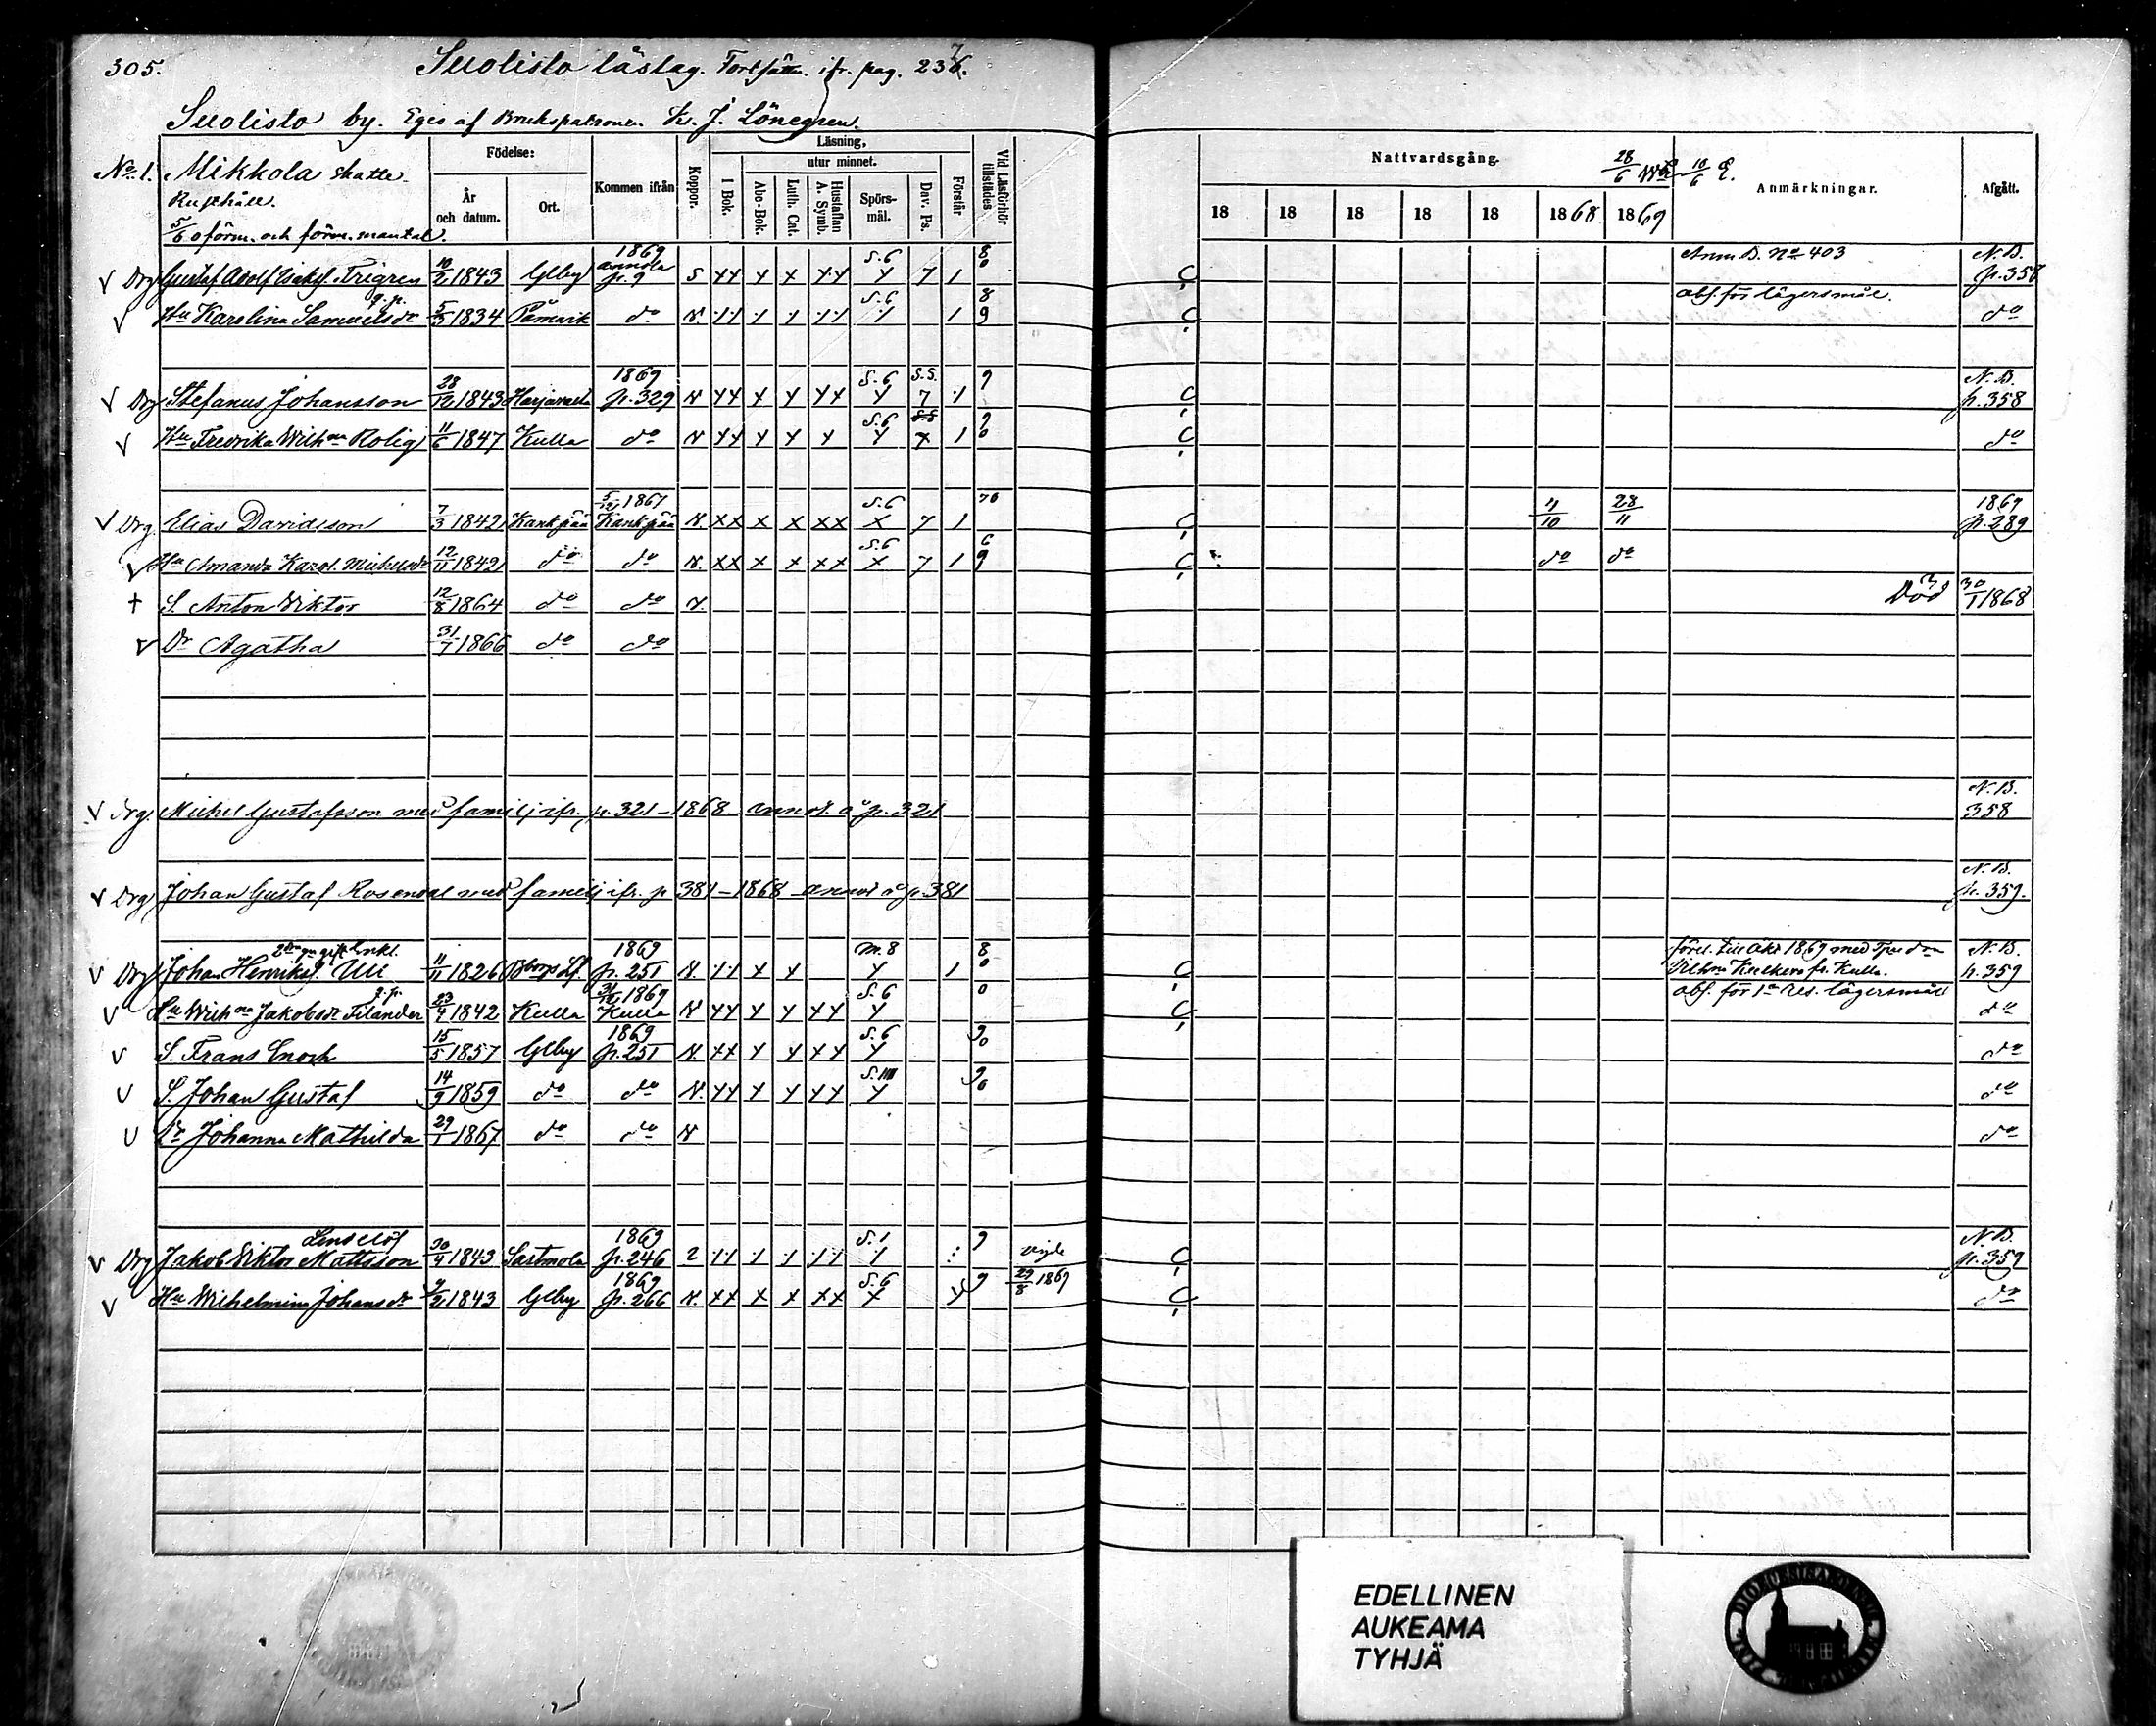 305.
Suolisto läslag. Fortsättn. ifr. pag. 237.
Suolisto by. Eges af Brukspatronen Fr. J. Lönegren.
No 1. Mikkola skatte
Rusthåll.
5/6 oförm. och förm. mantal.
Födelse: År och datum. Ort. Kommen ifrån Koppor. Läsning, I Bok. utur minnet. Abc-Bok. Luth. Cat. Hustaflan A. Symb. Spörs-mål. Dav. Ps. Förstår Vid Läsförhör tillstädes
Nattvardsgång. 28/6 10/6 E. Anmärkningar. Afgått.
18 18 18 18 18 1868 1869
Drg Gustaf Adolf Isaksf. Frigren 10/2 1843 Glby 1869 p. 9 S xx x x xx S.6 x 7 1 8 0 Anm. B. No 403 N.B. p. 358
Hu Karolina Samuelsdr 5/3 1834 Påmark do N. S.6 1 8 9 abs. för lägersmål. do
Drg Stefanus Johansson 28/12 1843 Harjavalta 1869 p. 329 N xx x x xx S.6 x S.S. 7 1 9 N.B. p. 358
Hu Fredrika Wilhna Rolig 11/6 1847 Kulla do N xx x x x S.6 x x 1 9 0 do
Drg. Elias Davidsson 7/3 1842 Kankpää 5/12 1867 Kankpää N. xx x x xx S.6 x 7 1 70 4/10 28/11 1869 p. 289
Hu Amanda Karol. Michelsdr 12/11 1842 do do N. xx x x xx S.6 x 7 1 6 9 do do
† S. Anton Viktor 12/8 1864 do do N. Död 30/1 1868
Dr Agatha 31/7 1866 do do
Drg. Michel Gustafsson med familj ifr. p. 321 – 1868 – annot. å p. 321 N.B. 358
Drg Johan Gustaf Rosendal med familj ifr. p 381 – 1868 – annot å p. 381 N.B. p. 359.
2dra gn gift Enkl.
Drg Johan Henriksf. Uli 11/11 1826 Bborgs Lf. 1869 p. 251 N. x x m.8 x 1 8 0 förel. till äkt. 1869 med Vilhna fr. Kulla. N.B. p. 359
Hu Wilhna Jakobsdr Filander 23/4 1842 Kulla 31/12 1869 Kulla N xx x x xx S.6 x 0 abs. för 1a res. lägersmål do
S. Frans Enoch 15/5 1857 Glby 1869 p. 251 N. xx x x xx S.6 x 9 0 do
S. Johan Gustaf 14/9 1859 do do N. xx x x xx x 9 0 do
Dr Johanna Mathilda 29/1 1867 do do N do
Lindelöf
Drg Jakob Viktor Mattsson 30/4 1843 Sastmola 1869 p. 246 2 S.1 9 vigde N.B. p. 359
Hu Wilhelmina Johansdr 1843 Glby 1869 p. 266 N. xx x x xx S.6 x 9 29/8 1869 do
EDELLINEN
AUKEAMA
TYHJÄ